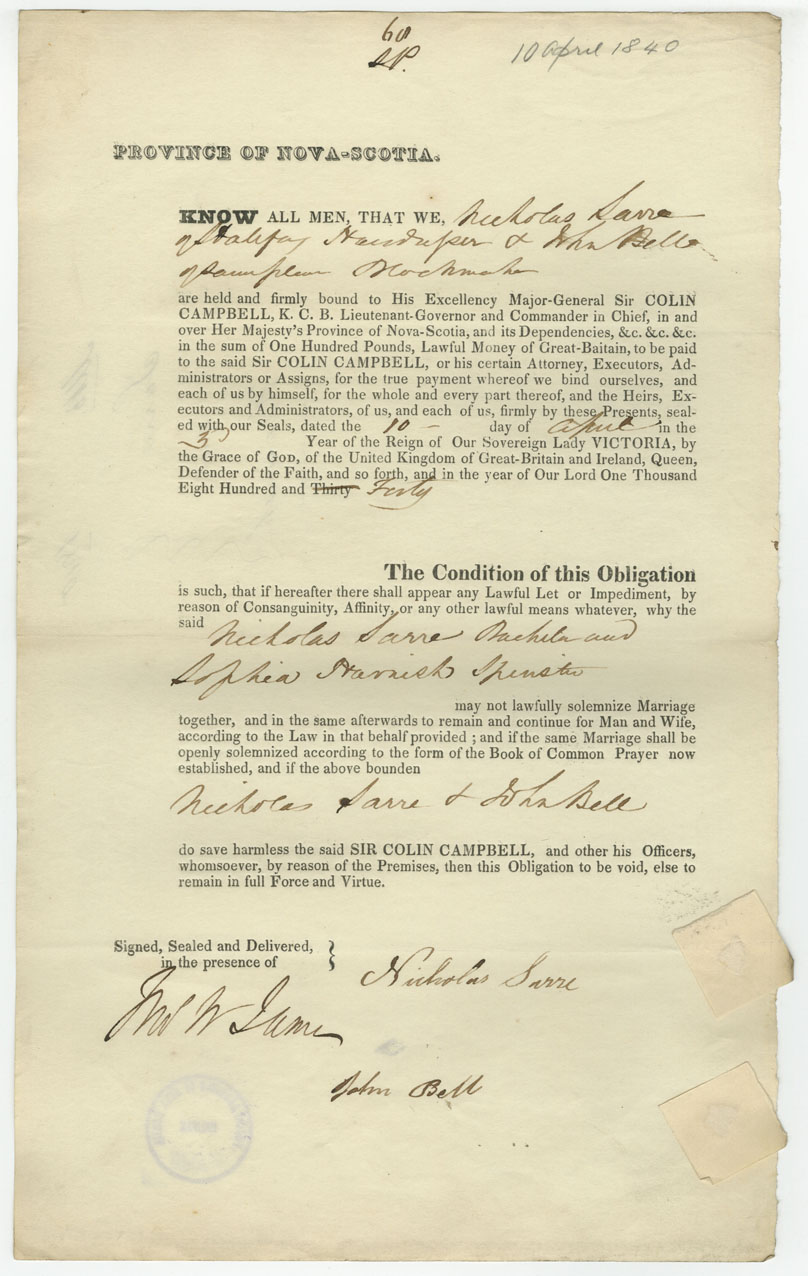 68
SP.
10 April 1840
PROVINCE OF NOVA-SCOTIA.
KNOW ALL MEN, THAT WE, Nicholas Sarre
of Halifax Hairdresser & John Bell
of same place Blockmaker
are held and firmly bound to His Excellency Major-General Sir COLIN
CAMPBELL, K. C. B. Lieutenant-Governor and Commander in Chief, in and
over Her Majesty's Province of Nova-Scotia, and its Dependencies, &c. &c. &c.
in the sum of One Hundred Pounds, Lawful Money of Great-Baitain, to be paid
to the said Sir COLIN CAMPBELL, or his certain Attorney, Executors, Ad-
ministrators or Assigns, for the true payment whereof we bind ourselves, and
each of us by himself, for the whole and every part thereof, and the Heirs, Ex-
ecutors and Administrators, of us, and each of us, firmly by these Presents, seal-
ed with our Seals, dated the 10 - day of April in the
3d Year of the Reign of Our Sovereign Lady VICTORIA, by
the Grace of GOD, of the United Kingdom of Great-Britain and Ireland, Queen,
Defender of the Faith, and so forth, and in the year of Our Lord One Thousand
Eight Hundred and Thirty Forty
The Condition of this Obligation
is such, that if hereafter there shall appear any Lawful Let or Impediment, by
reason of Consanguinity, Affinity, or any other lawful means whatever, why the
said Nicholas Sarre Bachelor and
Sophia Harnish Spinster
may not lawfully solemnize Marriage
together, and in the same afterwards to remain and continue for Man and Wife,
according to the Law in that behalf provided ; and if the same Marriage shall be
openly solemnized according to the form of the Book of Common Prayer now
established, and if the above bounden
Nicholas Sarre & John Bell
do save harmless the said SIR COLIN CAMPBELL, and other his Officers,
whomsoever, by reason of the Premises, then this Obligation to be void, else to
remain in full Force and Virtue.
Signed, Sealed and Delivered, }
in the presence of
Nicholas Sarre
Thos W James
John Bell